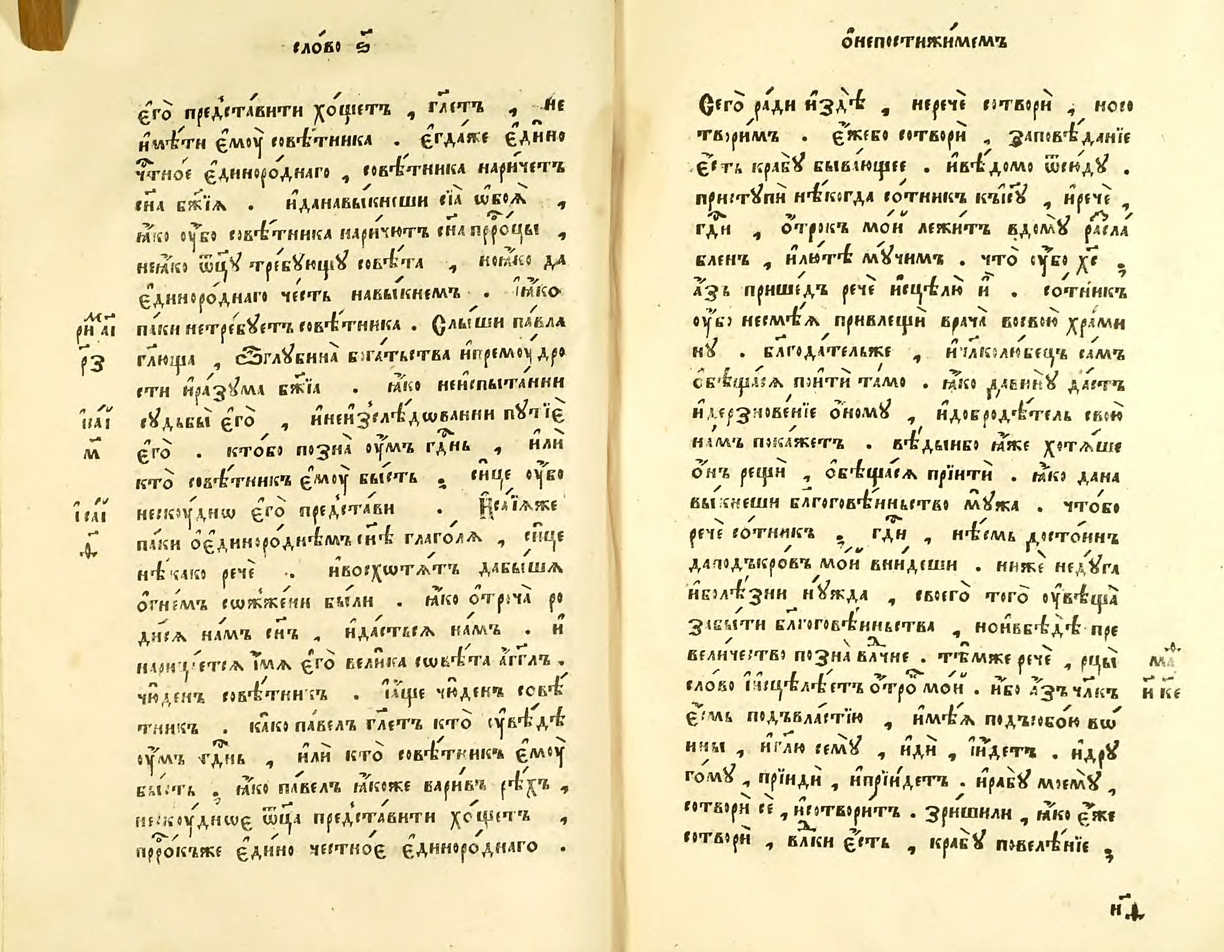 сло́во ѕ҃
є҆го̀ предста́вити хо́щетъ , гл҃етъ , не
и҆мѣ́ти є҆моу̀ совѣ́тника . є҆гда́же є҆ди́но
чⷭ҇тноє є҆диноро́днаго , совѣ́тника нари́четъ
сн҃а бж҃їѧ . и҆данавы́кнеши сїѧ̀ ѡ҆боѧ̀ ,
ꙗ҆́ко оу҆̀бо совѣ́тника наричю́тъ сн҃а прⷪ҇ро́цы ,
неꙗ҆́ко ѿц҃ꙋ̀ тре́бꙋющꙋ совѣ́та , ноꙗ҆́ко да
є҆диноро́днаго че́сть навы́кнемъ . ꙗ҆́ко
па́ки нетре́бꙋетъ совѣ́тника . Слы́ши па́вла
гл҃юща , Ѽ глꙋбина̀ бога́тьства и҆премоу́дро
сти и҆ра́зꙋма бж҃їа . ꙗ҆́ко неи҆спыта́нни
сꙋдьбы̀ є҆го̀ , и҆неи҆зслѣ́дѡванни пꙋтїє҆̀
є҆го̀ . кто́бо позна̀ оу҆́мъ гдⷭ҇нь , и҆лѝ
кто̀ совѣ́тникъ є҆моу̀ бы́сть . си́це оу҆̀бо
нескоу́днѡ є҆го̀ предста́ви . Иса́їѧже
па́ки ѻ҆є҆диноро́днѣмъ сн҃ѣ глаго́лѧ , си́це
нѣ́како речѐ . и҆восхѡтѧ́тъ дабы́шѧ
ѻ҆гне́мъ сѡжже́ни бы́ли . ꙗ҆́ко ѻ҆троча̀ ро
ди́сѧ на́мъ сн҃ъ , и҆да́стьсѧ на́мъ . и҆
нарица́етсѧ и҆́мѧ є҆го̀ вели́ка сѡвѣ́та а҆́гг҃лъ .
чю́денъ совѣ́тникъ . і҆а́ще чю́денъ совѣ́
тникъ . ка́ко па́велъ гл҃етъ кто̀ оу҆вѣ́дѣ
оу҆́мъ гдⷭ҇нь , и҆лѝ кто̀ совѣ́тникъ є҆моу̀
бы́сть . ꙗ҆́ко па́велъ ꙗ҆́коже вари́въ рѣ́хъ ,
нескоу́днѡє ѿц҃а предста́вити хо́щетъ ,
прⷪ҇ро́къже є҆ди́но че́стноє є҆диноро́днаго .
ри а҃і
р҃з
и҆са́і
м҃
і҆са́і
ѳ҃
ѻ҆непостижи́мемъ
Сего̀ ра́ди и҆здѣ̀ , неречѐ сотворѝ , носо
твори́мъ . є҆́жебо сотворѝ , заповѣ́данїе
є҆́сть крабꙋ̀ быва́ющее . и҆вѣ́домо ѿсю́дꙋ .
пристꙋпѝ нѣ́когда со́тникъ къі҆с҃ꙋ , и҆речѐ ,
гдⷭ҇и , ѻ҆́трокъ мо́й лежи́тъ вдомꙋ̀ ра́сла
бленъ , и҆лю́тѣ мꙋ́чимъ . что̀ оу҆̀бо хс҃ ,
а҆́зъ прише́дъ речѐ и҆сцѣлю̀ и҆̀ . со́тникъ
оу҆́бо несмѣ́ѧ привлещѝ врача̀ восвою̀ хра́ми
нꙋ . благода́тельже , и҆чл҃колю́бецъ са́мъ
ѻ҆бѣща́сѧ пои҆тѝ та́мо . ꙗ҆́ко давинꙋ̀ да́стъ
и҆дерзнове́нїе ѻ҆́номꙋ , и҆добродѣ́тель свою̀
на́мъ пока́жетъ . вѣ́дыибо ꙗ҆́же хотѧ́ше
ѻ҆́нъ рещѝ , ѻ҆бѣща́сѧ прїитѝ . ꙗ҆́ко дана
вы́кнеши бл҃гоговѣ́иньство мꙋ́жа . что́бо
речѐ со́тникъ . гдⷭ҇и , нѣ́смь досто́инъ
даподъкро́въ мо́й вни́деши . ниже недꙋ́га
и҆болѣ́зни нꙋ́жда , своего̀ того̀ оу҆вѣща̀
забы́ти бл҃гоговѣ́иньства , нои҆вбѣдѣ̀ пре
вели́чество позна̀ влⷣчне . тѣ́мже речѐ , рцы̀
сло́во і҆и҆сцѣлѣ́етъ ѻ҆́троⷦ҇ мо́й . и҆́бо а҆́зъ чл҃къ
є҆́смь подъвла́стїю , и҆мѣ́ѧ подъсобо́ю вѡ́
ины , и҆гл҃ю семꙋ̀ , и҆дѝ , і҆и҆́детъ . и҆дрꙋ
го́мꙋ , прїидѝ , и҆прїи́детъ . и҆рабꙋ̀ моемꙋ̀ ,
сотворѝ сѐ , и҆сотвори́тъ . зри́шили , ꙗ҆́ко є҆́же
сотворѝ , влⷣки є҆́сть , крабꙋ̀ повелѣ́нїе ,
маⷴ҇
и҆ к҃е
н҃д